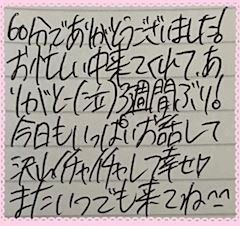 60分でありがとうございました!
お忙しい中来てくれて、あ
りがとー(泣)3週間ぶり!
今日もいっぱいお話して
沢山イチャイチャして幸せ♡
またいつでも来てね^^